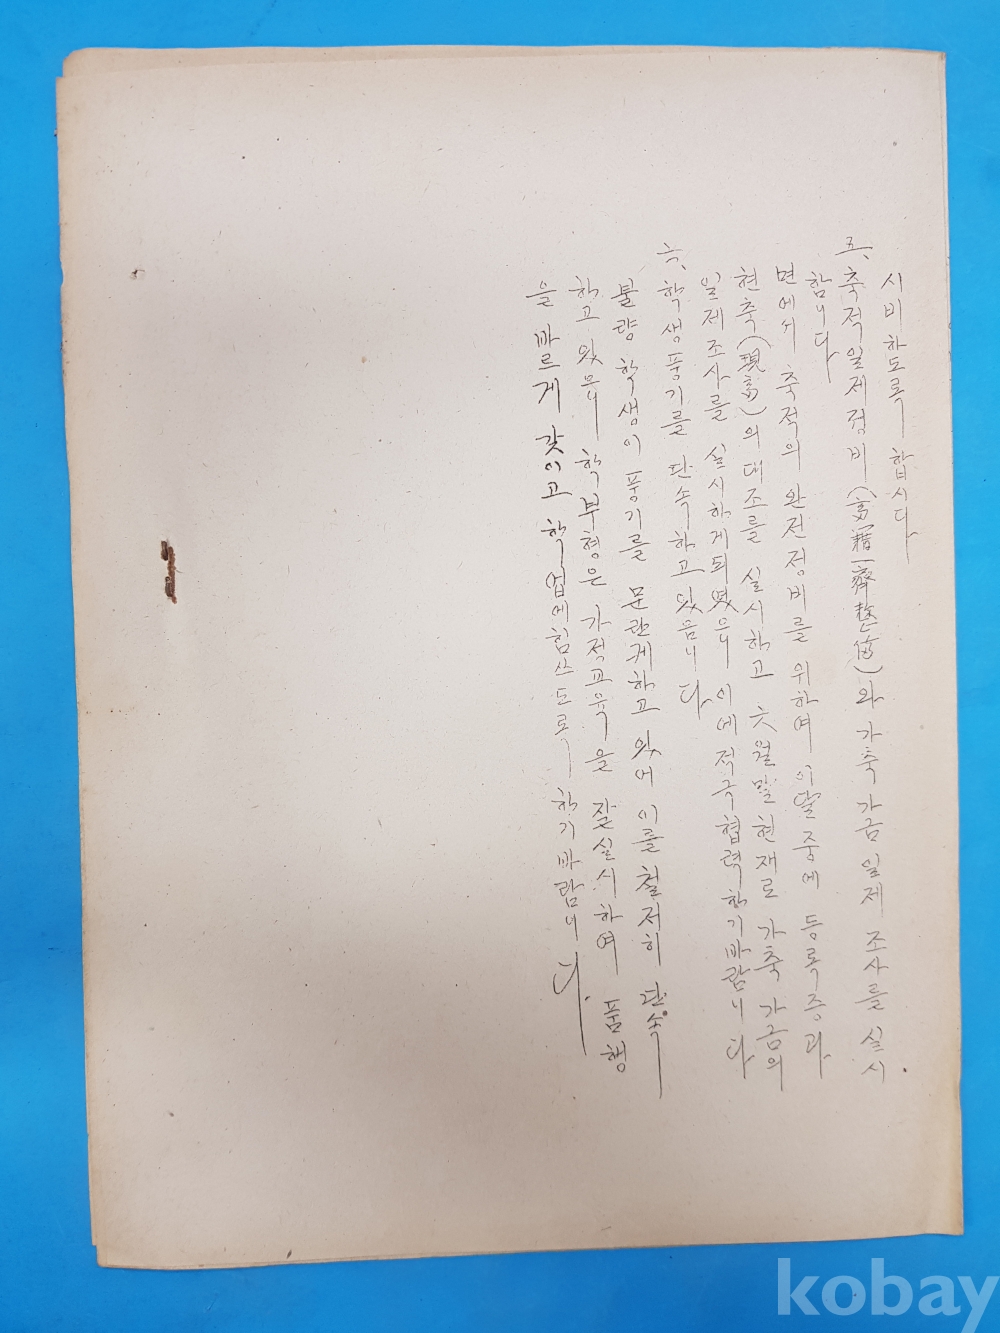 시비하도록 합시다
五、축적일제정비(畜籍一齊整備)와 가축가금일제 조사를 실시
합니다
면에서 축적의 완전정비를 위하여 이달중에 등록증과
현축(現畜)의 대조를 실시하고 六월말현재로 가축가금의
일제조사를 실시하게되였으니 이에적극협력하기바람니다
六、학생풍기를 단속하고있음니다
불량 학생이 풍기를 문란케하고 있어 이를철저히 단속
하고 있으니 학부형은 가정교육을 잘실시하여 품행
을 바르게 갖이고 학업에힘쓰도록 하기바람니다.
kobay